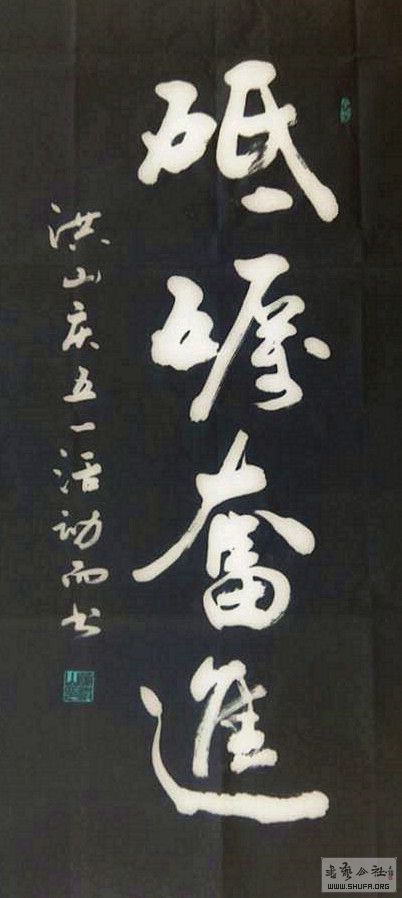 砥礪奮進
洪山庆五一活动而书
书艺公社
WWW.SHUFA.ORG